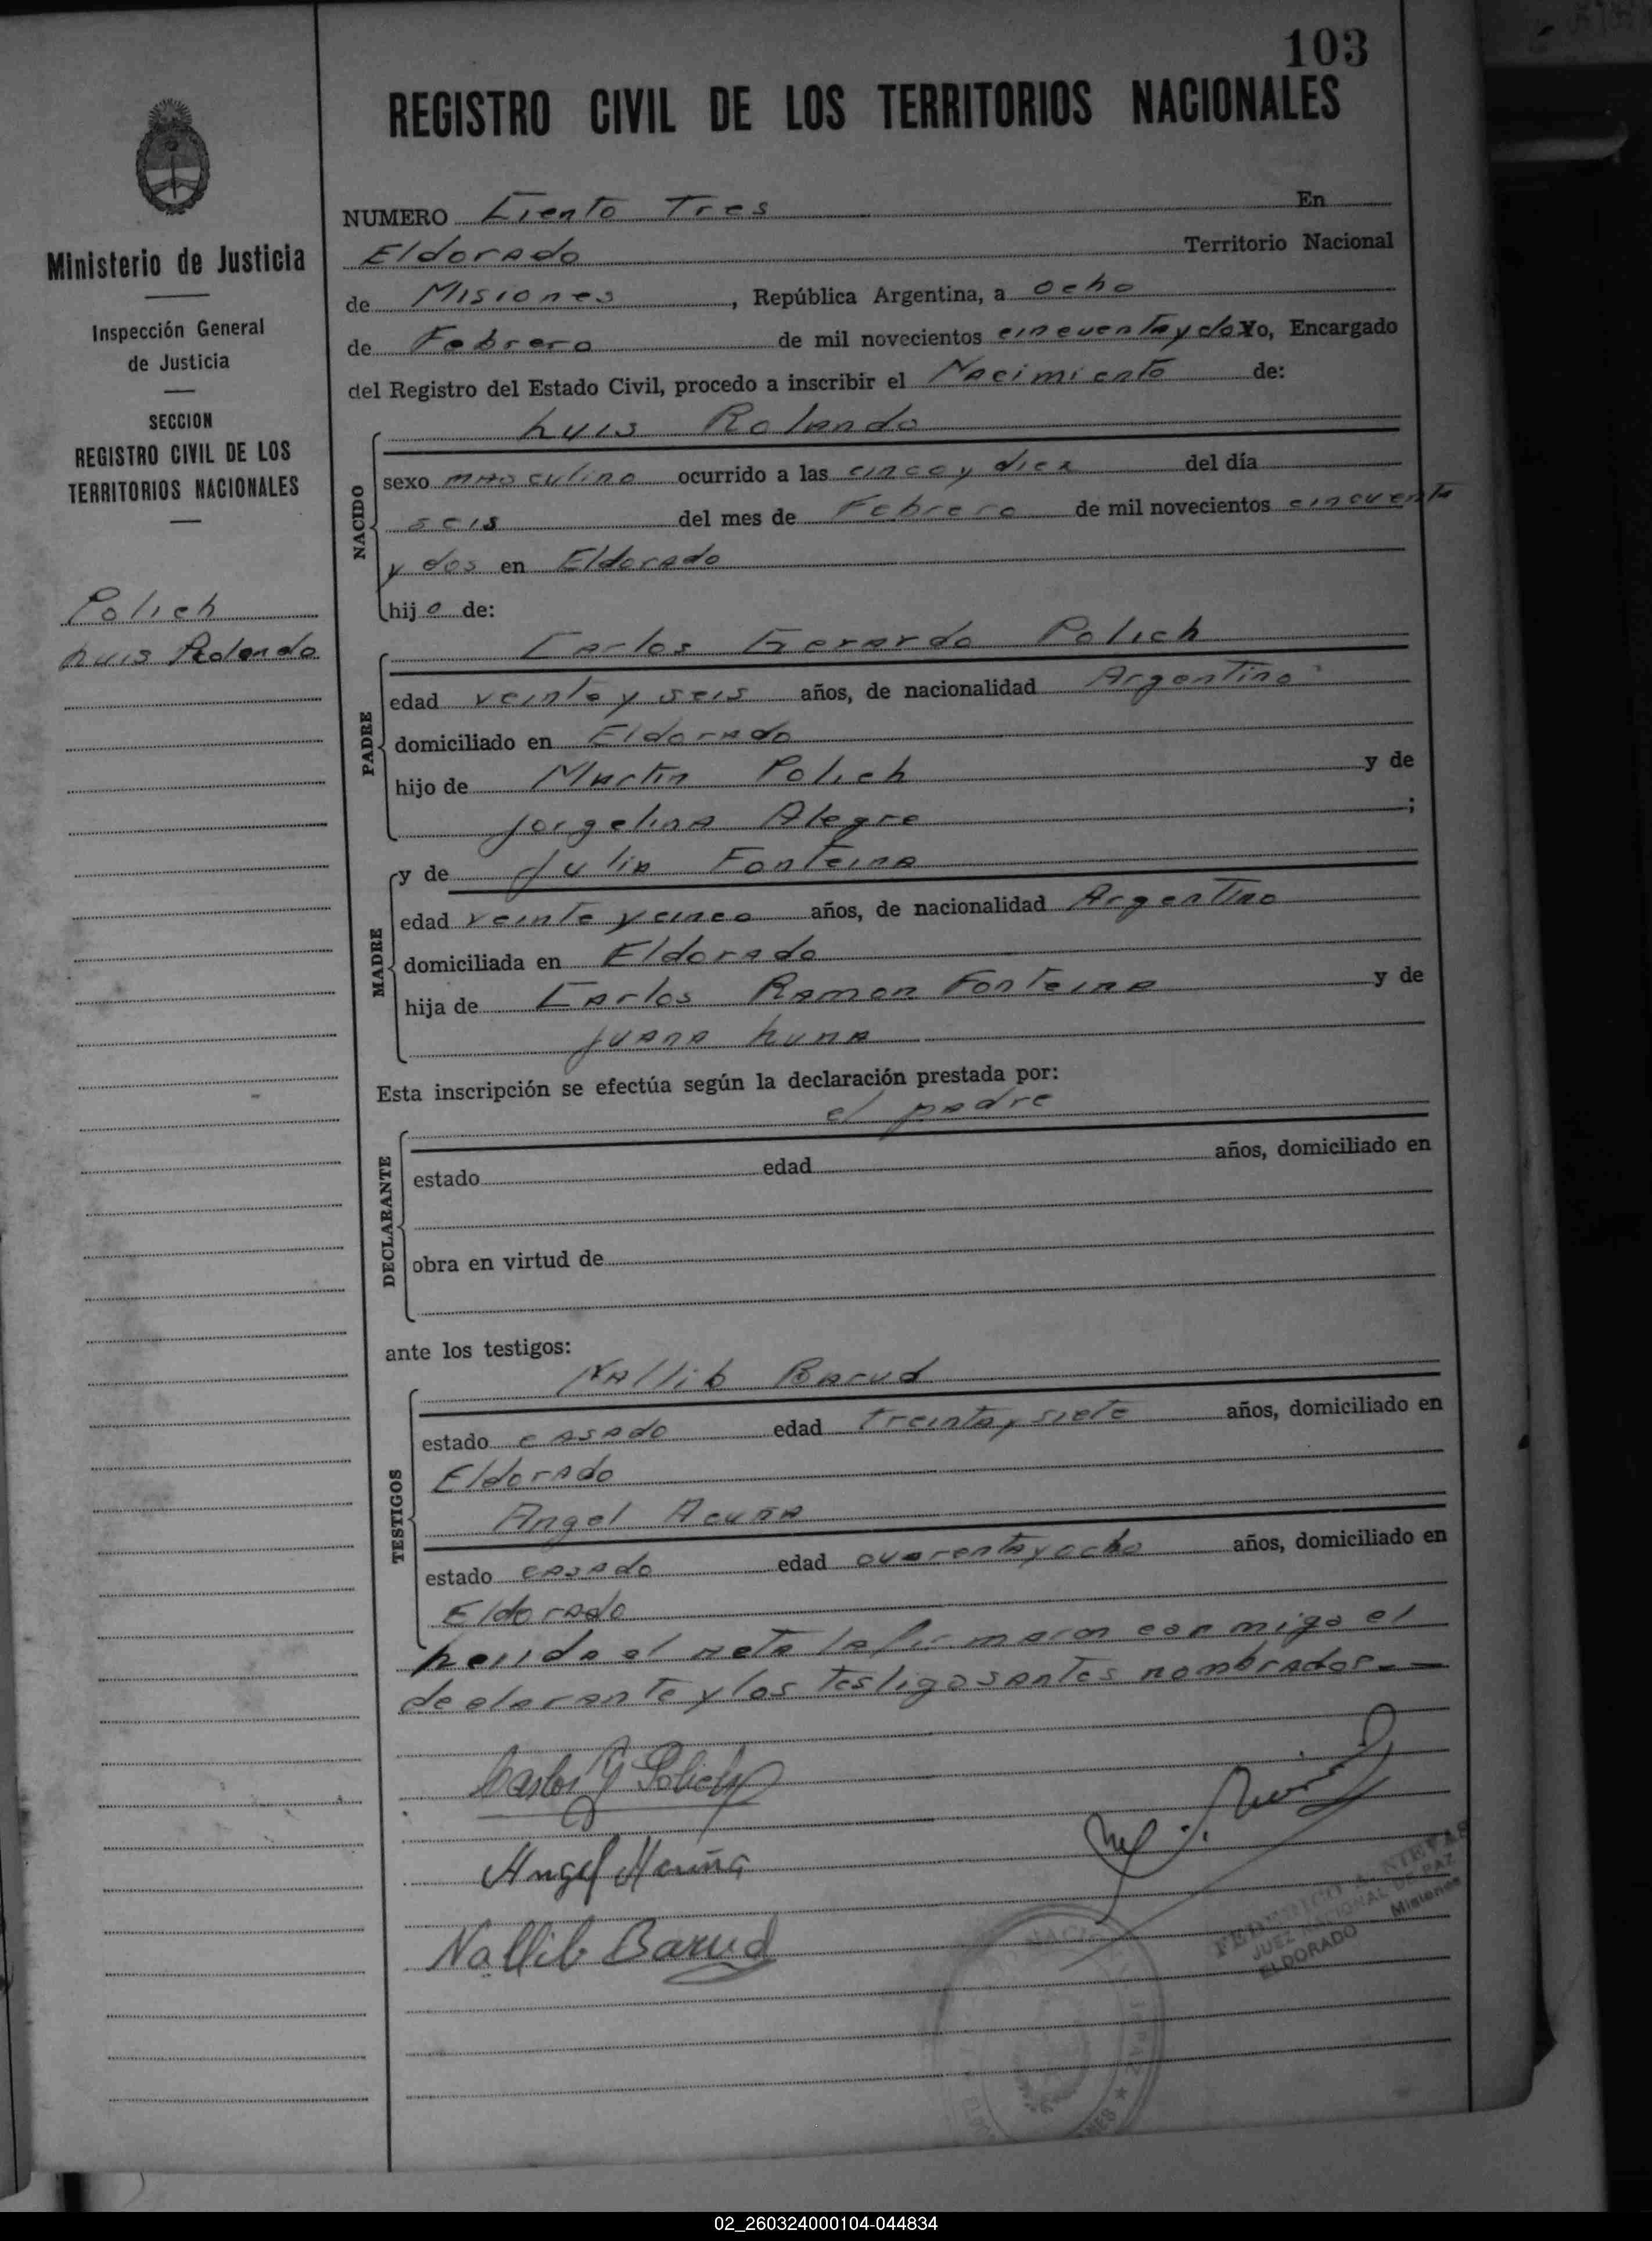 103
REGISTRO CIVIL DE LOS TERRITORIOS NACIONALES
Ministerio de Justicia
Inspección General
de Justicia
SECCION
REGISTRO CIVIL DE LOS
TERRITORIOS NACIONALES
Polich
Luis Rolando
NUMERO Ciento Tres En
Eldorado Territorio Nacional
de Misiones, República Argentina, a ocho
de Febrero de mil novecientos cincuenta y dos Yo, Encargado
del Registro del Estado Civil, procedo a inscribir el Nacimiento de:
NACIDO
Luis Rolando
sexo masculino ocurrido a las cinco y diez del día
seis del mes de Febrero de mil novecientos cincuenta
y dos en Eldorado
hijo de:
PADRE
Carlos Gerardo Polich
edad veinte y seis años, de nacionalidad Argentino
domiciliado en Eldorado
hijo de Martin Polich y de
Jorgelina Alegre;
MADRE
y de Julia Fonteina
edad veinte y cinco años, de nacionalidad Argentina
domiciliada en Eldorado
hija de Carlos Ramon Fonteina y de
Juana Luna
Esta inscripción se efectúa según la declaración prestada por:
DECLARANTE
el padre
estado edad años, domiciliado en
obra en virtud de
ante los testigos:
TESTIGOS
Nallib Barud
estado casado edad treinta y siete años, domiciliado en
Eldorado
Angel Acuña
estado casado edad cuarenta y ocho años, domiciliado en
Eldorado
Leida el acta la firmaron conmigo el
declarante y los testigos antes nombrados.-
Carlos G Polich
Angel Acuña
Nallib Barud
FEDERICO A. NIEVAS
JUEZ NACIONAL DE PAZ
ELDORADO Misiones
02_260324000104-044834